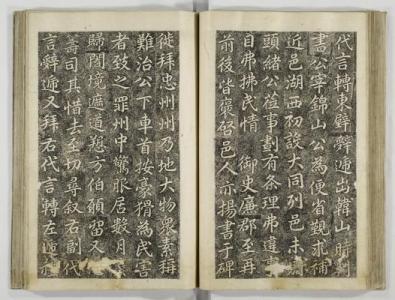 代言轉東壁辤逓出韓山時判
書公宰錦山公為便省覲求補
近邑湖西初設大同列邑未
頭緒公莅事劃有条理弗
自弗拂民情 御史廉郡至再
前後皆褒啓邑人亦揚書于碑
徙拜忠州州乃地大物衆素稱
難治公下車首按豪猾為民害
者致之罪州中驚服居數月
歸闔境遮道愬方伯願留又
籌司其惜去至切尋叙右副代
言辤逓又拜右代言轉左